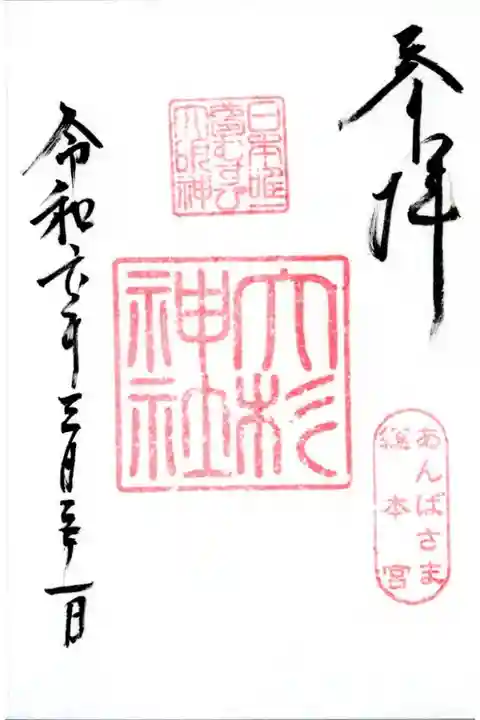 参拝
日本唯一
夢むすび
大明神
大杉
神社
あんばさま
總本宮
令和六年三月二十一日